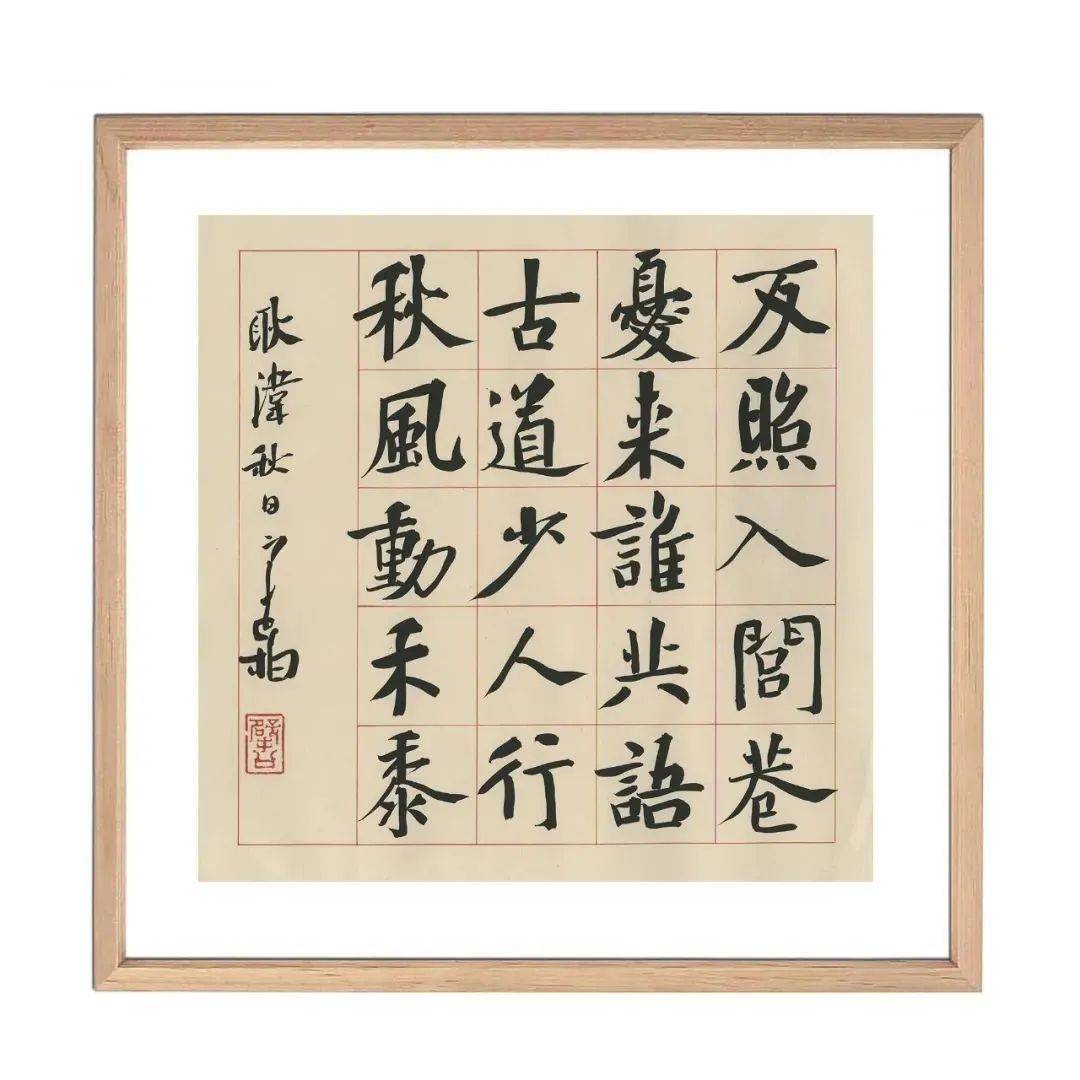 反照入閭巷
憂来誰共語
古道少人行
秋風動禾黍
耿湋秋日